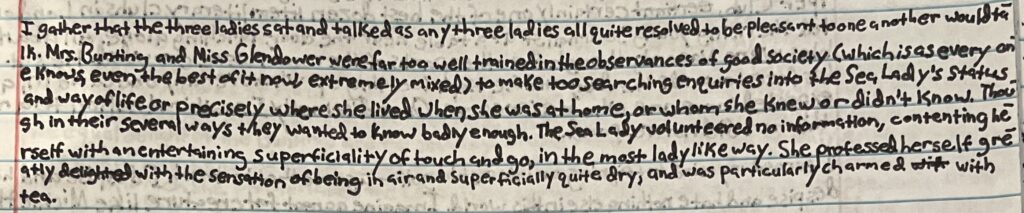 I gather that the three ladies sat and talked as any three ladies all quite resolved to be pleasant to one another would ta
lk. Mrs. Bunting and Miss Glendower were far too well trained in the observances of good society (which is as every on
e knows, even the best of it now extremely mixed) to make too searching enquiries into the Sea Lady's status
and way of life or precisely where she lived when she was at home, or whom she knew or didn't know. Thou
gh in their several ways they wanted to know badly enough. The Sea Lady volunteered no information, contenting he
rself with an entertaining superficiality of touch and go, in the most ladylike way. She professed herself gre
atly delighted with the sensation of being in air and superficially quite dry, and was particularly charmed with
tea.